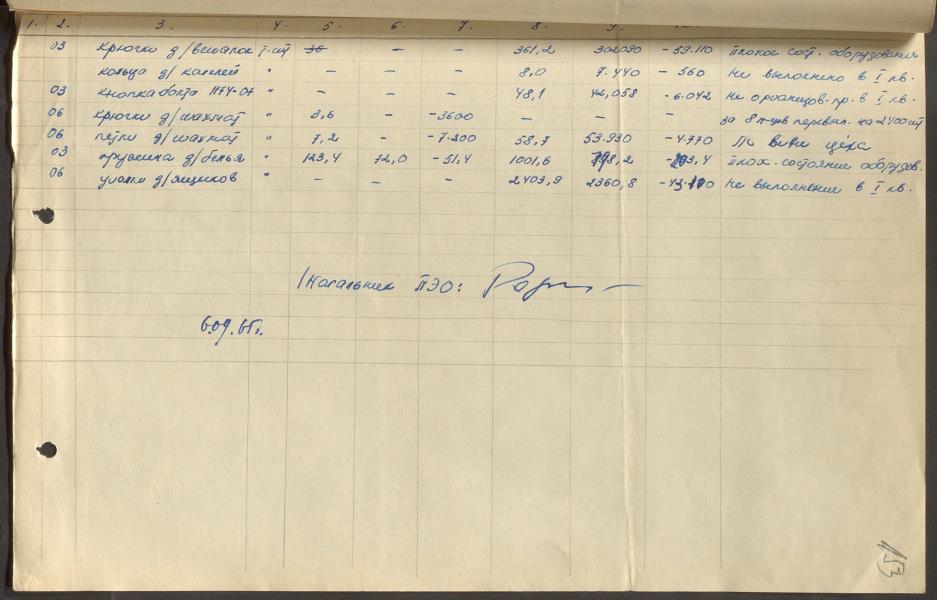 1. 2. 3. 4. 5. 6. 7. 8. 9.
03 крючки д/вешалок т.шт 36 — — 361,2 302090 -59.110 плохое сост. оборудования
кольца д/ " — — — 8,0 7.440 - 560 Не выполнено в I кв.
03 кнопка 1174-07 " — — — 48,1 42,058 -6.042 Не организов. пр. в I кв.
06 крючки д/шахмат " 3,6 — -3600 — — — за 8 м-цев перевып. на 2400 шт
06 петли д/шахмат " 7,2 - -7.200 58,7 53.930 -4.770 По вине цеха
03 пружина д/белья " 123,4 72,0 -51,4 1001,6 798,2 -203,4 плох. состояние оборудов.
06 уголки д/ящиков " — — — 2403,9 2360,8 Не выполнение в I кв.
Начальник ПЭО:
6.09.65г.
153